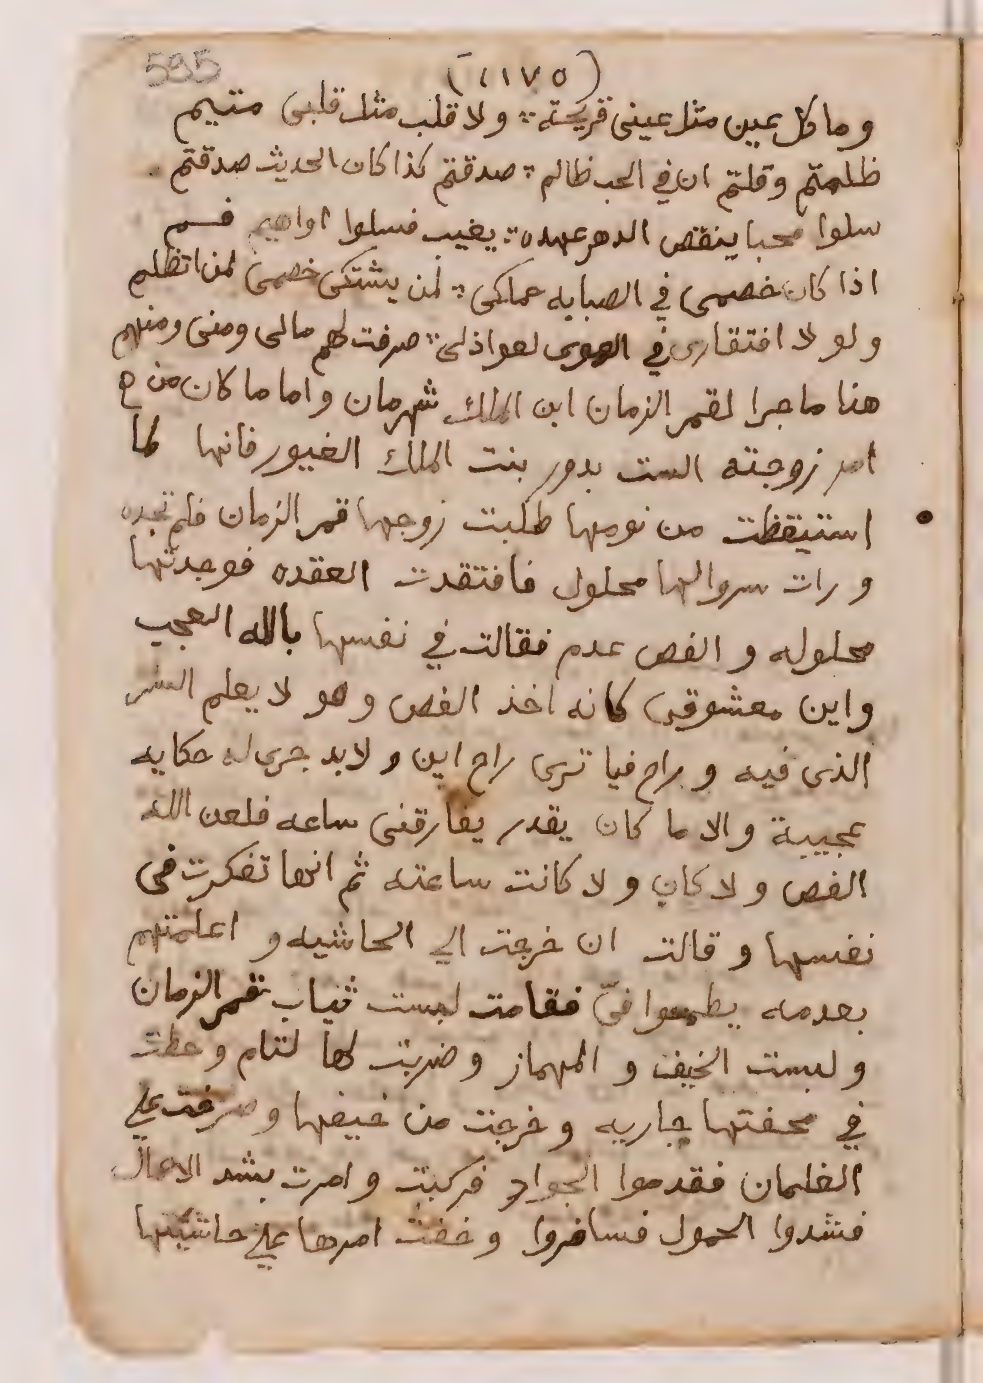 595
(١١٧٥)
وما كل عين مثل عينى قريحته ؛ ولا قلب مثل قلبى متيم
ظلمتم وقلتم ان في الحب ظالم ؛ صدقتم كذا كان الحديث صدقتم
سلوا محبا ينقص الدهر عهده ؛ يغيب فسلوا
اذا كان خصمى في الصبابه عملكى ؛ لمن يشتكى خصمى لمن اتظلم
ولولا افتقارى في الهوى لعواذلى ؛ صرفت لهم مالى ومنى ومنهم
هذا ما جرا لقمر الزمان ابن الملك شهرمان واما ما كان من
امر زوجته الست بدور بنت الملك الغيور فانها لما
استيقظت من نومها طلبت زوجها قمر الزمان فلم تجده
ورات سروالها محلول فافتقدت العقده فوجدتها
محلوله والفص عدم فقالت في نفسها بالله العجب
واين معشوقى كانه اخذ الفص وهو لا يعلم السر
الذى فيه وراح فيا ترى راح اين ولابد جرى له حكايه
عجيبة والا ما كان يقدر يفارقنى ساعه فلعن الله
الفص ولا كان ولا كانت ساعته ثم انها تفكرت فى
نفسها وقالت ان خرجت الي الحاشيه واعلمتهم
بعدمه يطمعوا فىّ فقامت لبست ثياب قمر الزمان
ولبست الخيف والمهماز وضربت لها لثام وحطت
في محفتها جاريه وخرجت من خيمها وصرخت علي
الغلمان فقدموا الجواد فركبت وامرت بشد الاحمال
فشدوا الحمول فسافروا وخفت امرها علي حاشيتها